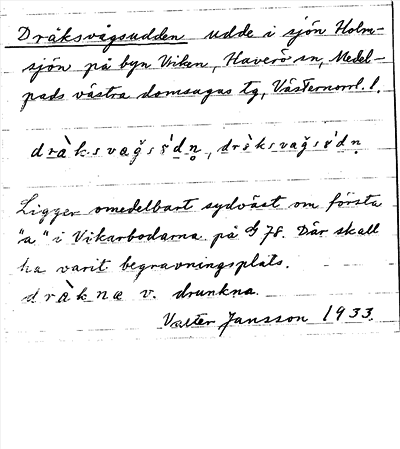 Dråksvågsudden udde i sjön Holm-
sjön på byn Viken, Haverö sn, Medel-
pads västra domsagas tg, Västernorrl. l.
Ligger omedelbart sydväst om första
"a" i Vikarbodarna på G 78. Där skall
ha varit begravningsplats.
dràkna v. drunkna.
Valter Jansson 1933.